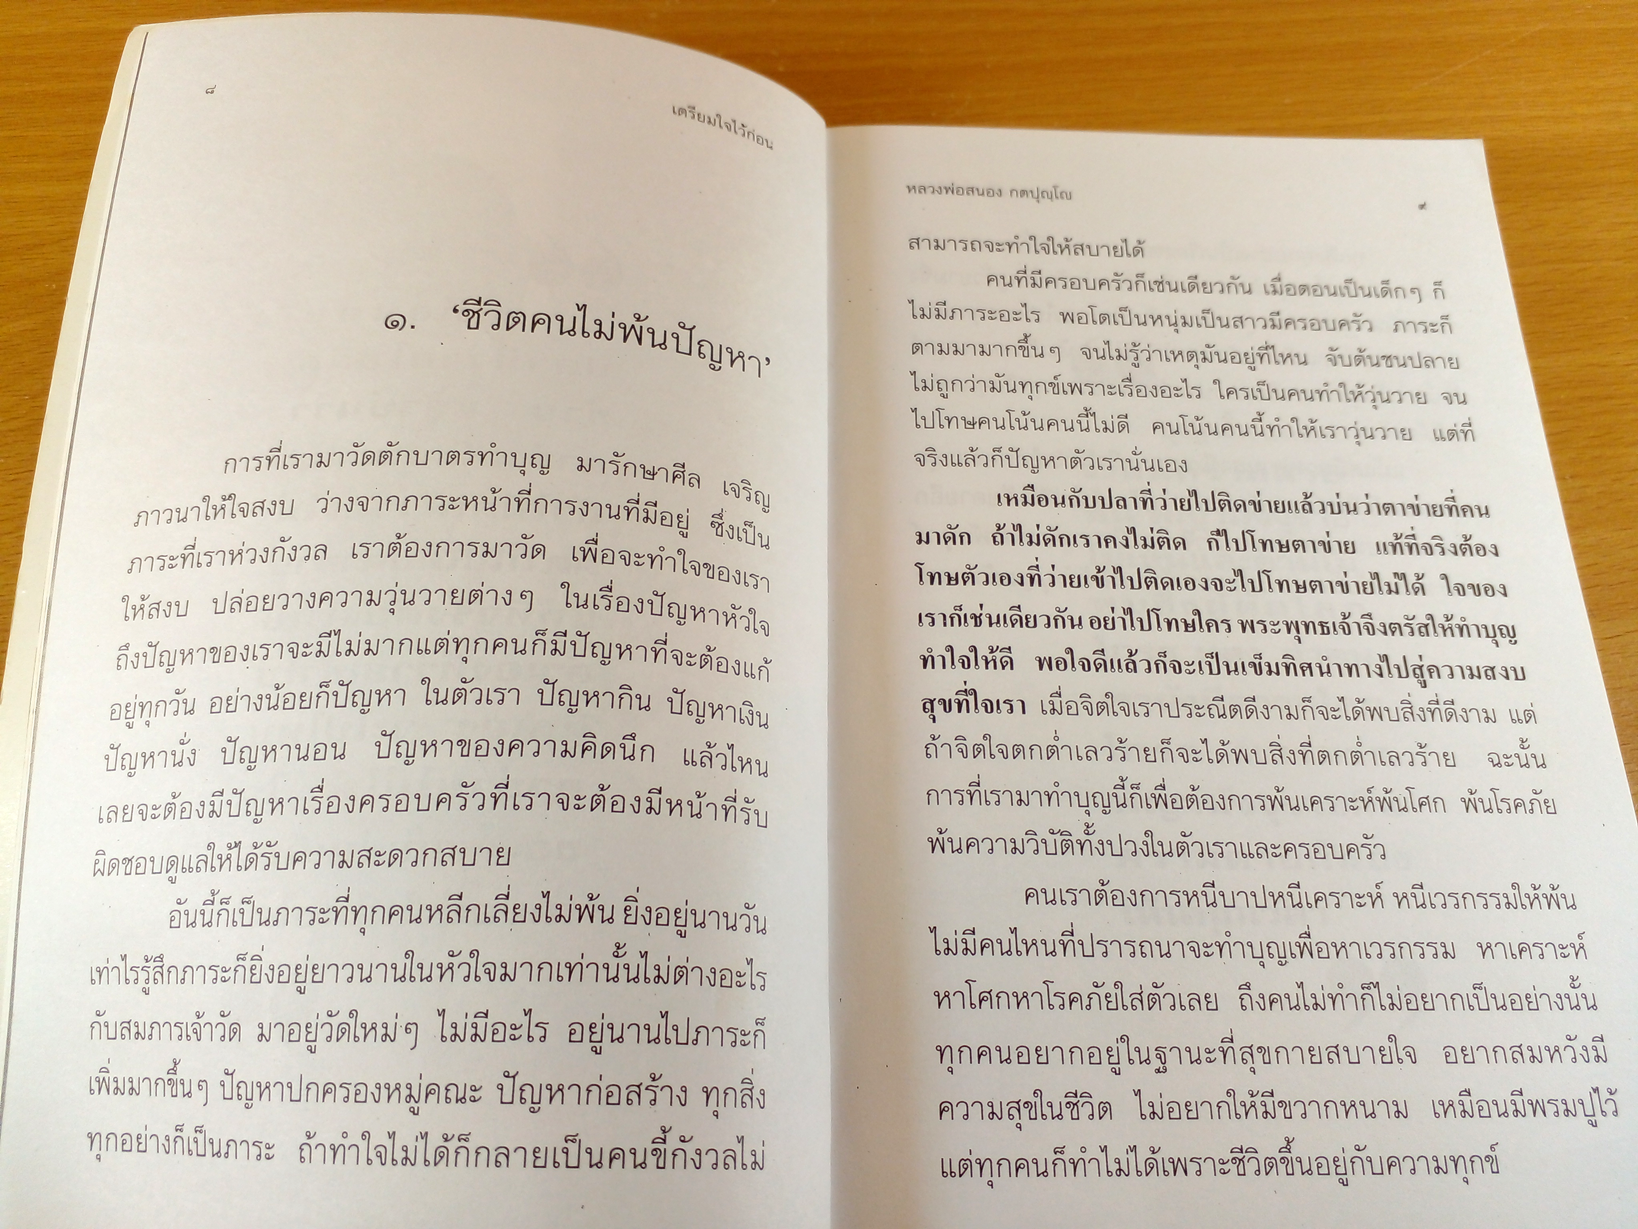 ๘
เตรียมใจไว้ก่อน
๑. ‘ชีวิตคนไม่พ้นปัญหา’
การที่เรามาวัดตักบาตรทำบุญ มารักษาศีล เจริญ
ภาวนาให้ใจสงบ ว่างจากภาระหน้าที่การงานที่มีอยู่ ซึ่งเป็น
ภาระที่เราห่วงกังวล เราต้องการมาวัด เพื่อจะทำใจของเรา
ให้สงบ ปล่อยวางความวุ่นวายต่างๆ ในเรื่องปัญหาหัวใจ
ถึงปัญหาของเราจะมีไม่มากแต่ทุกคนก็มีปัญหาที่จะต้องแก้
อยู่ทุกวัน อย่างน้อยก็ปัญหา ในตัวเรา ปัญหากิน ปัญหาเงิน
ปัญหานั่ง ปัญหานอน ปัญหาของความคิดนึก แล้วไหน
เลยจะต้องมีปัญหาเรื่องครอบครัวที่เราจะต้องมีหน้าที่รับ
ผิดชอบดูแลให้ได้รับความสะดวกสบาย
อันนี้ก็เป็นภาระที่ทุกคนหลีกเลี่ยงไม่พ้น ยิ่งอยู่นานวัน
เท่าไรรู้สึกภาระก็ยิ่งอยู่ยาวนานในหัวใจมากเท่านั้นไม่ต่างอะไร
กับสมภารเจ้าวัด มาอยู่วัดใหม่ๆ ไม่มีอะไร อยู่นานไปภาระก็
เพิ่มมากขึ้นๆ ปัญหาปกครองหมู่คณะ ปัญหาก่อสร้าง ทุกสิ่ง
ทุกอย่างก็เป็นภาระ ถ้าทำใจไม่ได้ก็กลายเป็นคนขี้กังวลไม่
หลวงพ่อสนอง กตปุญฺโญ
๙
สามารถจะทำใจให้สบายได้
คนที่มีครอบครัวก็เช่นเดียวกัน เมื่อตอนเป็นเด็กๆ ก็
ไม่มีภาระอะไร พอโตเป็นหนุ่มเป็นสาวมีครอบครัว ภาระก็
ตามมามากขึ้นๆ จนไม่รู้ว่าเหตุมันอยู่ที่ไหน จับต้นชนปลาย
ไม่ถูกว่ามันทุกข์เพราะเรื่องอะไร ใครเป็นคนทำให้วุ่นวาย จน
ไปโทษคนโน้นคนนี้ไม่ดี คนโน้นคนนี้ทำให้เราวุ่นวาย แต่ที่
จริงแล้วก็ปัญหาตัวเรานั่นเอง
เหมือนกับปลาที่ว่ายไปติดข่ายแล้วบ่นว่าตาข่ายที่คน
มาดัก ถ้าไม่ดักเราคงไม่ติด ก็ไปโทษตาข่าย แท้ที่จริงต้อง
โทษตัวเองที่ว่ายเข้าไปติดเองจะไปโทษตาข่ายไม่ได้ ใจของ
เราก็เช่นเดียวกัน อย่าไปโทษใคร พระพุทธเจ้าจึงตรัสให้ทำบุญ
ทำใจให้ดี พอใจดีแล้วก็จะเป็นเข็มทิศนำทางไปสู่ความสงบ
สุขที่ใจเรา เมื่อจิตใจเราประณีตดีงามก็จะได้พบสิ่งที่ดีงาม แต่
ถ้าจิตใจตกต่ำเลวร้ายก็จะได้พบสิ่งที่ตกต่ำเลวร้าย ฉะนั้น
การที่เรามาทำบุญนี้ก็เพื่อต้องการพ้นเคราะห์พ้นโศก พ้นโรคภัย
พ้นความวิบัติทั้งปวงในตัวเราและครอบครัว
คนเราต้องการหนีบาปหนีเคราะห์ หนีเวรกรรมให้พ้น
ไม่มีคนไหนที่ปรารถนาจะทำบุญเพื่อหาเวรกรรม หาเคราะห์
หาโศกหาโรคภัยใส่ตัวเลย ถึงคนไม่ทำก็ไม่อยากเป็นอย่างนั้น
ทุกคนอยากอยู่ในฐานะที่สุขกายสบายใจ อยากสมหวังมี
ความสุขในชีวิต ไม่อยากให้มีขวากหนาม เหมือนมีพรมปูไว้
แต่ทุกคนก็ทำไม่ได้เพราะชีวิตขึ้นอยู่กับความทุกข์